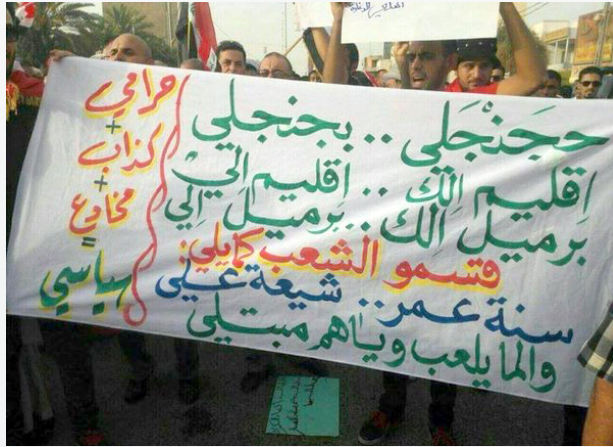 حجنجلي .. بجنجلي
اقليم الك .. اقليم الي
برميل الك .. برميل الي
قسمو الشعب كمايلي:
سنة عمر .. شيعة علي
والما يلعب وياهم مبتلي
حرامي
+
كذاب
+
مخادع
=
سياسي